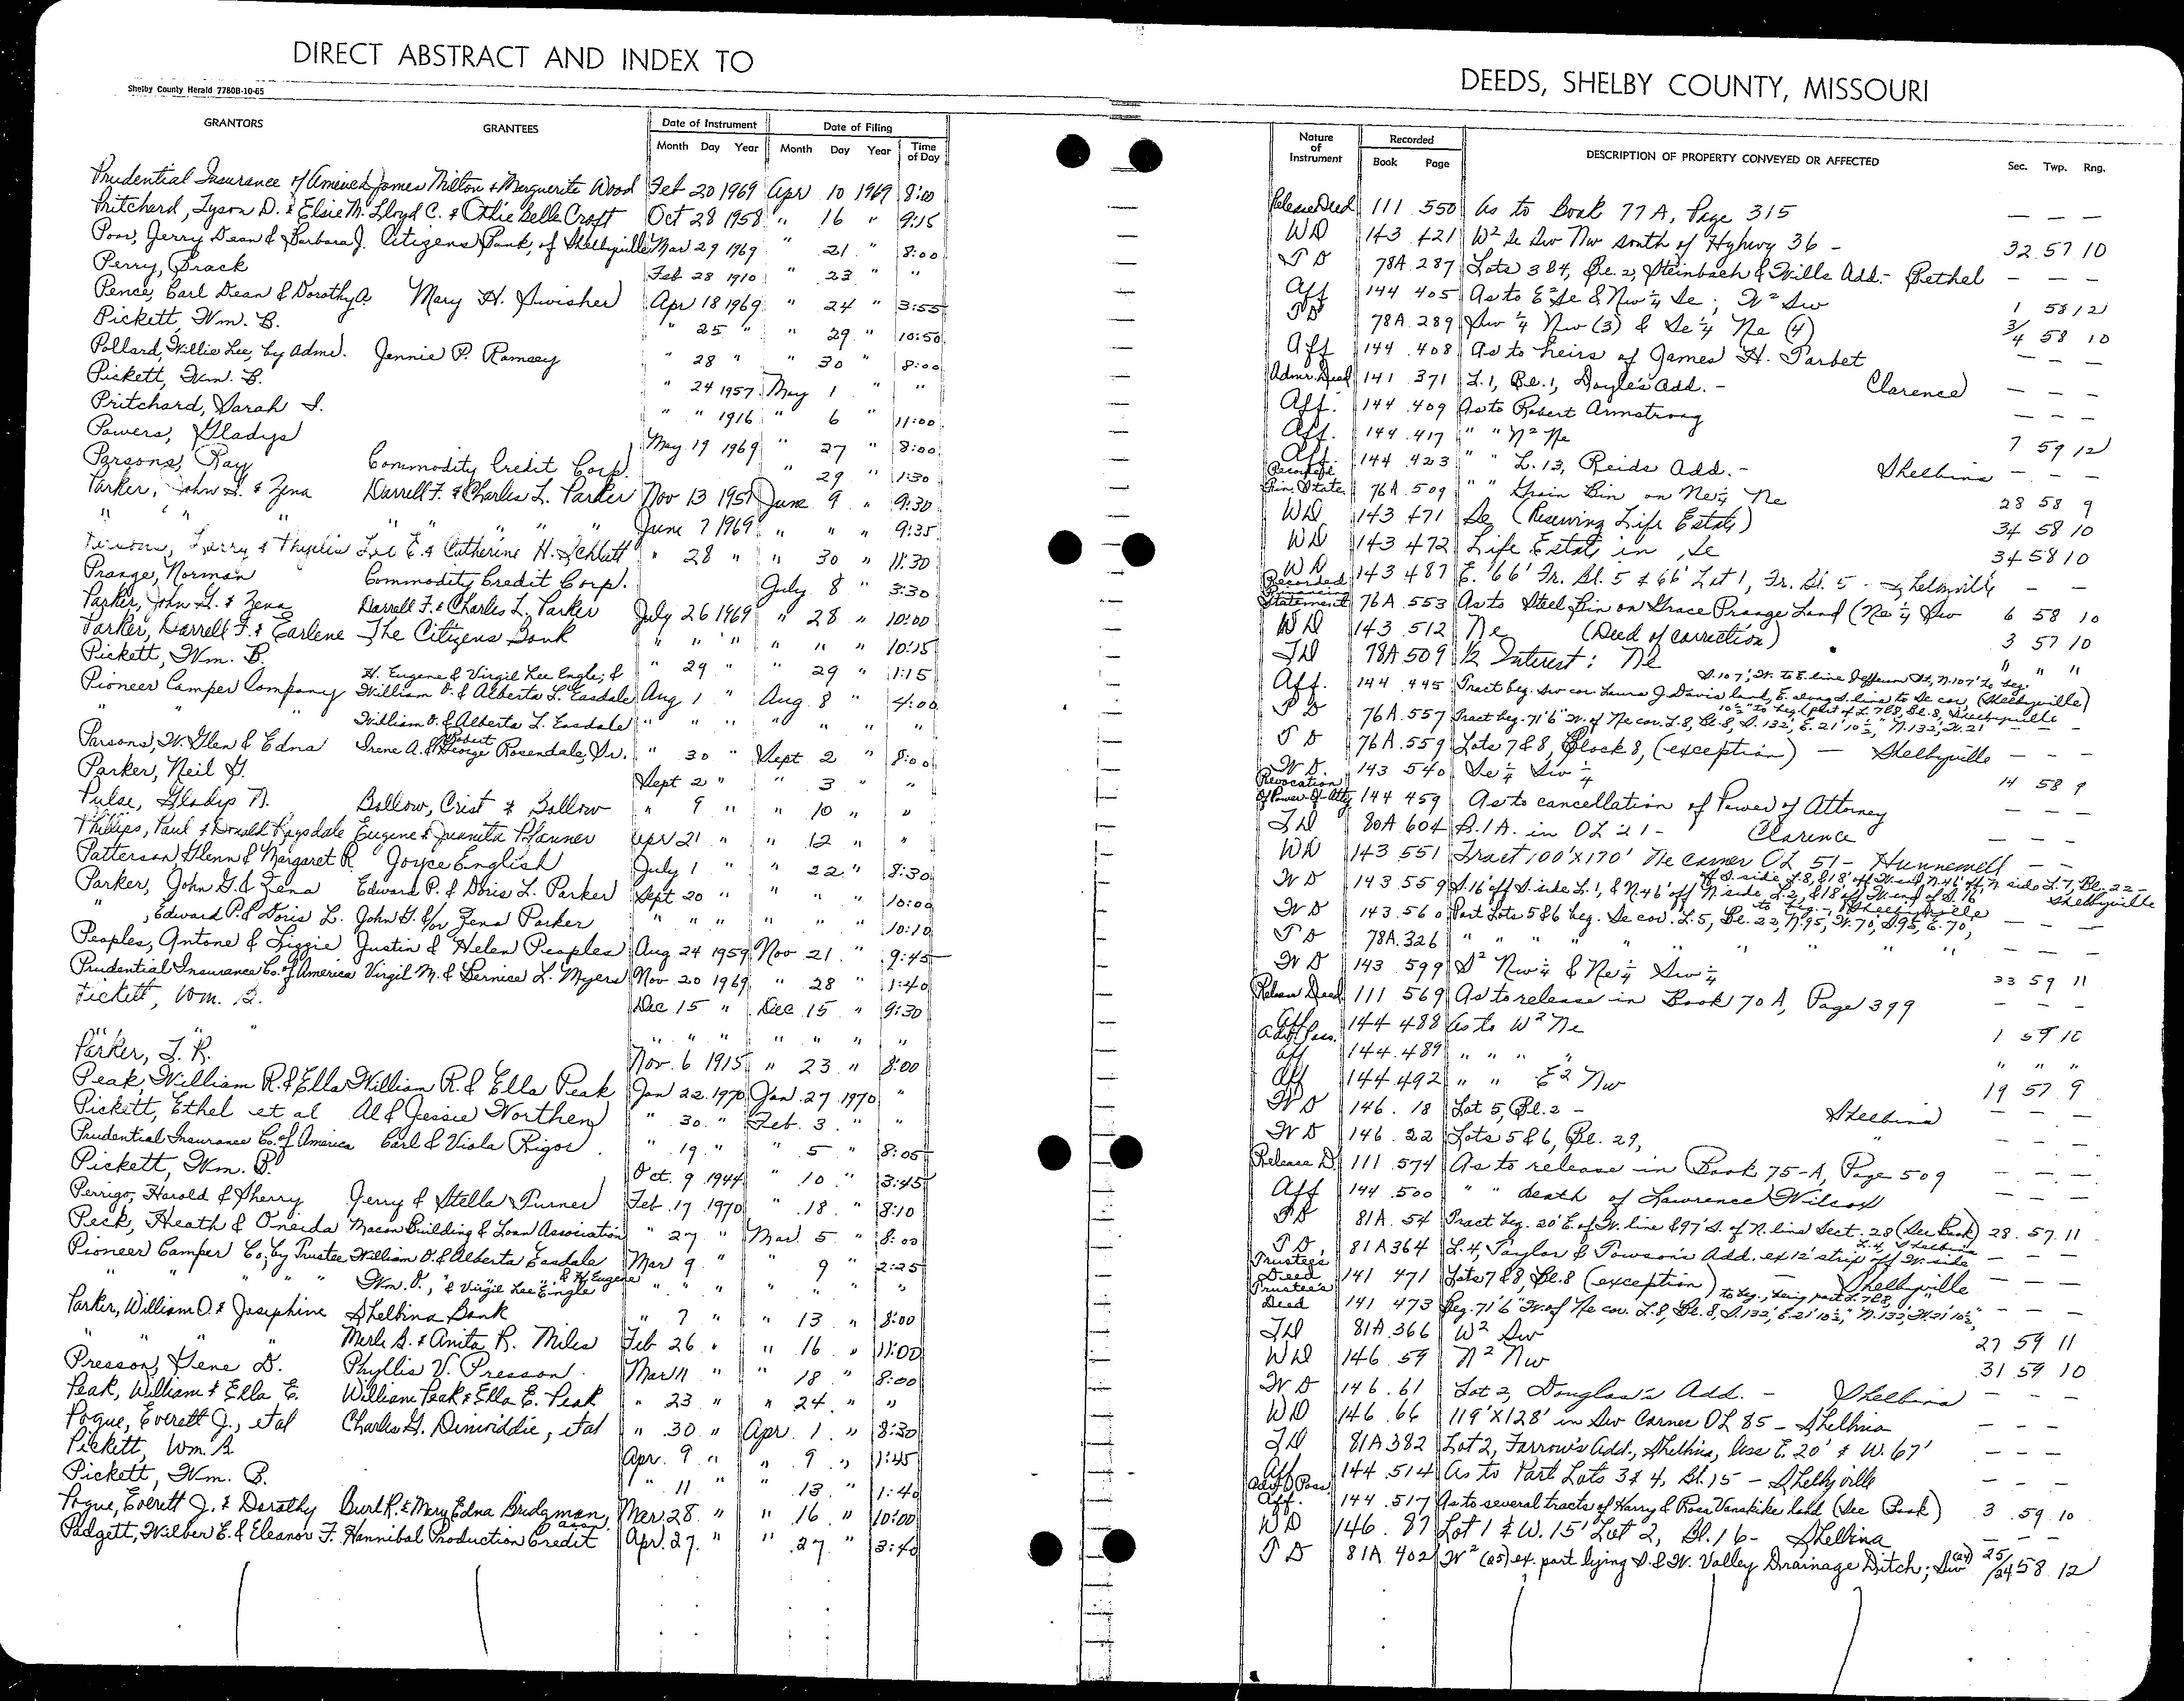 DIRECT ABSTRACT AND INDEX TO
Shelby County Herald 7780B-10-65
GRANTORS GRANTEES Date of Instrument Month Day Year Date of Filing Month Day Year Time of Day
Prudential Insurance of America James Milton & Marguerite Wood Feb 20 1969 Apr 10 1969 8:00
Pritchard, Tyson D. & Elsie M. Lloyd C. & Othie Belle Croft Oct 28 1958 " 16 " 9:15
Poor, Jerry Dean & Barbara J. Citizens Bank, of Shelbyville Mar 29 1969 " 21 " 8:00
Perry, Brack Feb 28 1910 " 23 " "
Pence, Carl Dean & Dorothy A. Mary H. Swisher Apr 18 1969 " 24 " 3:55
Pickett, Wm. B. " 25 " " 29 " 10:50
Pollard, Willie Lee, by Adme. Jennie P. Ramsey " 28 " " 30 " 8:00
Pickett, Wm. B. " 24 1957 May 1 " "
Pritchard, Sarah I. " " 1916 " 6 " 11:00
Powers, Gladys May 19 1969 " 27 " 8:00
Parsons, Ray Commodity Credit Corp. " 29 " 1:30
Parker, John G. & Zena Darrell F. & Charles L. Parker Nov 13 1951 June 9 " 9:30
" " " " " " " " June 7 1969 " " " 9:35
Larry & Phyllis Lee E. & Catherine H. Schlatt " 28 " " 30 " 11:30
Prange, Norman Commodity Credit Corp. July 8 " 3:30
Parker, John G. & Zena Darrell F. & Charles L. Parker July 26 1969 " 28 " 10:00
Parker, Darrell F. & Earlene The Citizens Bank " " " " " " 10:15
Pickett, Wm. B. " 29 " " 29 " 1:15
H. Eugene & Virgil Lee Engle; &
Pioneer Camper Company William O. & Alberta L. Easdale Aug 1 " Aug. 8 " 4:00
" " William O. & Alberta L. Easdale " " " " " " "
Parsons, W. Glen & Edna Irene A. & Robert George Rosendale, Sr. " 30 " Sept 2 " 8:00
Parker, Neil G. Sept 2 " " 3 " "
Pulse, Gladys N. Bollow, Crist & Bollow " 9 " " 10 " "
Phillips, Paul & Donald Ragsdale Eugene & Juanita Pfanner Apr 21 " " 12 " "
Patterson, Glenn & Margaret R. Joyce English July 1 " " 22 " 8:30
Parker, John G. & Zena Edward P. & Doris L. Parker Sept 20 " " " " 10:00
" , Edward P. & Doris L. John G. &/or Zena Parker " " " " " " 10:10
Peoples, Antone & Lizzie Justin & Helen Peoples Aug 24 1959 Nov 21 " 9:45
Prudential Insurance Co. of America Virgil M. & Bernice L. Myers Nov 20 1969 " 28 " 1:40
Pickett, Wm. B. Dec 15 " Dec 15 " 9:30
" " " " " " " " "
Parker, J. R. Nov. 6 1915 " 23 " 8:00
Peak, William R. & Ella William R. & Ella Peak Jan 22 1970 Jan. 27 1970 "
Pickett, Ethel et al Al & Jessie Worthen " 30 " Feb. 3 " "
Prudential Insurance Co. of America Carl & Viola Rigor " 19 " " 5 " 8:05
Pickett, Wm. B. Oct. 9 1944 " 10 " 3:45
Perrigo, Harold & Sherry Jerry & Stella Turner Feb. 17 1970 " 18 " 8:10
Peck, Heath & Oneida Macon Building & Loan Association " 27 " Mar. 5 " 8:00
Pioneer Camper Co; by Trustee William O. & Alberta Easdale Mar 9 " " 9 " 2:25
" " " " Wm. O., " & Virgil Lee Engle & H. Eugene " " " " " " "
Parker, William O. & Josephine Shelbina Bank " 7 " " 13 " 8:00
" " " " Merle S. & Anita R. Miles Feb 26 " " 16 " 11:00
Presson, Gene D. Phyllis V. Presson Mar 11 " " 18 " 8:00
Peak, William & Ella E. William Peak & Ella E. Peak " 23 " " 24 " "
Pogue, Everett J., et al Charles G. Dinwiddie, et al " 30 " Apr. 1 " 8:30
Pickett, Wm. B. Apr. 9 " " 9 " 1:45
Pickett, Wm. B. " 11 " " 13 " 1:40
Pogue, Everett J. & Dorothy Burl R. & Mary Edna Bridgman, Mar 28 " " 16 " 10:00
Padgett, Wilber E. & Eleanor F. Hannibal Production Credit Assn Apr. 27 " " 27 " 3:40
DEEDS, SHELBY COUNTY, MISSOURI
Nature of Instrument Recorded Book Page DESCRIPTION OF PROPERTY CONVEYED OR AFFECTED Sec. Twp. Rng.
Release Deed 111 550 As to Book 77A, Page 315 — — —
WD 143 421 W² Se Sw Nw south of Hghwy 36 - 32 57 10
TD 78A 287 Lots 3 & 4, Bl. 2, Steinbach & Wills Add. - Bethel — — —
Aff 144 405 As to E² Se & Nw¼ Se; W² Sw 1 58 12
TD 78A 289 Sw ¼ Nw (3) & Se ¼ Ne (4) 3/4 58 10
Aff 144 408 As to heirs of James H. Tarbet — — —
Admr. Deed 141 371 L. 1, Bl. 1, Doyle's Add. - Clarence — — —
Aff. 144 409 As to Robert Armstrong — — —
Aff. 144 417 " " N² Ne 7 59 12
Aff. 144 423 " " L. 13, Reids Add. - Shelbina — — —
Fin. State. 76A 509 " " Grain Bin on Ne¼ Ne 28 58 9
WD 143 471 Se (Reserving Life Estate) 34 58 10
WD 143 472 Life Estate in Se 34 58 10
WD 143 487 E. 66' Fr. Bl. 5 & 66' Lot 1, Fr. Bl. 5 - Shelbyville — —
Recorded Financing Statement 76A 553 As to Steel Bin on Grace Prange Land (Ne ¼ Sw 6 58 10
WD 143 512 Ne (Deed of correction) 3 57 10
TD 78A 509 ½ Interest: Ne " " "
S. 107', W. to E. line Jefferson St, N. 107' to beg.
Aff. 144 445 Tract beg. Sw cor. Laura J. Davis land, E. along S. line to Se cor, (Shelbyville)
10½" to beg. (part of L. 7&8, Bl. 8, Shelbyville
TD 76A 557 Tract beg. 71'6" W. of Ne cor. L. 8, Bl. 8, S. 132', E. 21' 10½", N. 132', W. 21' — — —
TD 76A 559 Lots 7 & 8, Block 8, (exception) — Shelbyville — — —
WD 143 540 Se ¼ Sw ¼ 14 58 9
Revocation Of Power Of Atty 144 459 As to cancellation of Power of Attorney — — —
TD 80A 604 B. 1 A. in OL 21 - Clarence — — —
WD 143 551 Tract 100' X 170' Ne corner OL 51 - Hunnewell — —
WD 143 559 S. 16' off S. side L. 1, & N. 46' off N. side L. 2, & 18' off W. end of S. 16' Shelbyville
WD 143 560 Part Lots 5 & 6 beg. Se cor. L. 5, Bl. 22, N. 95', W. 70', S. 95', E. 70', — — —
TD 78A 326 " " " " " " " — — —
WD 143 599 S² Nw¼ & Ne¼ Sw¼ 33 59 11
Release Deed 111 569 As to release in Book 70 A, Page 399 — — —
Aff 144 488 As to W² Ne 1 59 10
Aff 144 489 " " " " " " "
Aff 144 492 " " E² Nw 19 57 9
WD 146 18 Lot 5, Bl. 2 - Shelbina — — —
WD 146 22 Lots 5 & 6, Bl. 29, " — — —
Release D. 111 574 As to release in Book 75-A, Page 509 — — —
Aff 144 500 " " death of Lawrence Wilcox — — —
TD 81A 54 Tract beg. 20' E. of W. line & 97' S. of N. line Sect. 28 (See Book) 28 57 11
TD. 81A 364 L. 4, Taylor & Towson's Add. ex 12' strip off W. side L. 4, Shelbina — — —
Trustee's Deed 141 471 Lots 7 & 8, Bl. 8 (exception) — Shelbyville — — —
to beg., being part L. 7&8, "
Trustee's Deed 141 473 Beg. 71'6" W. of Ne cor. L. 8, Bl. 8, S. 132', E. 21' 10½", N. 132', W. 21' 10½", — — —
TD 81A 366 W² Sw 27 59 11
WD 146 59 N² Nw 31 59 10
WD 146 61 Lot 2, Douglas's Add. - Shelbina — — —
WD 146 66 119' X 128' in Sw Corner OL 85 - Shelbina — — —
TD 81A 382 Lot 2, Farrow's Add., Shelbina, less E. 20' & W. 67' — — —
Aff 144 514 As to Part Lots 3 & 4, Bl. 15 - Shelbyville — — —
Adv. Poss. Aff. 144 517 As to several tracts of Harry & Rosa Vanskike land (See Book) 3 59 10
WD 146 87 Lot 1 & W. 15' Lot 2, Bl. 16 - Shelbina — — —
TD 81A 402 W² (25) ex. part lying S. & W. Valley Drainage Ditch; Sw (24) 25/24 58 12